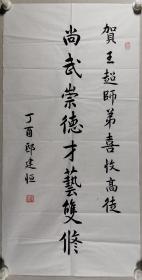 賀王超師弟喜收高徒
尚武崇德才藝雙修
丁酉邸建恒